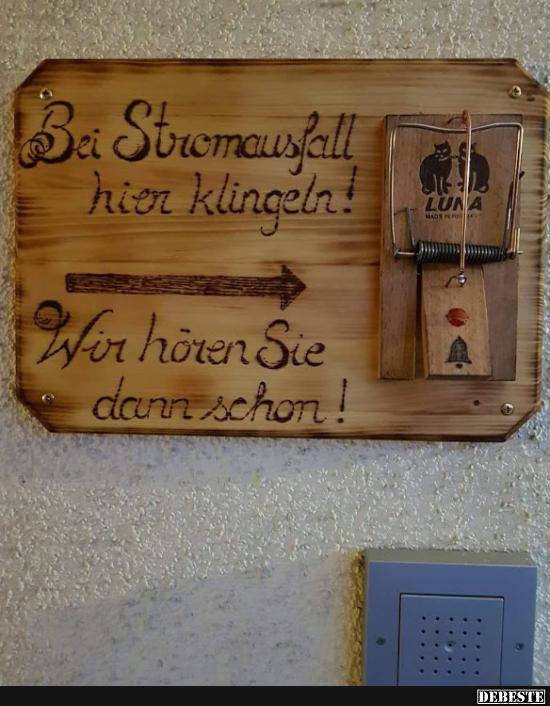 Bei Stromausfall
hier klingeln!
Wir hören Sie
dann schon!
LUNA
DEBESTE